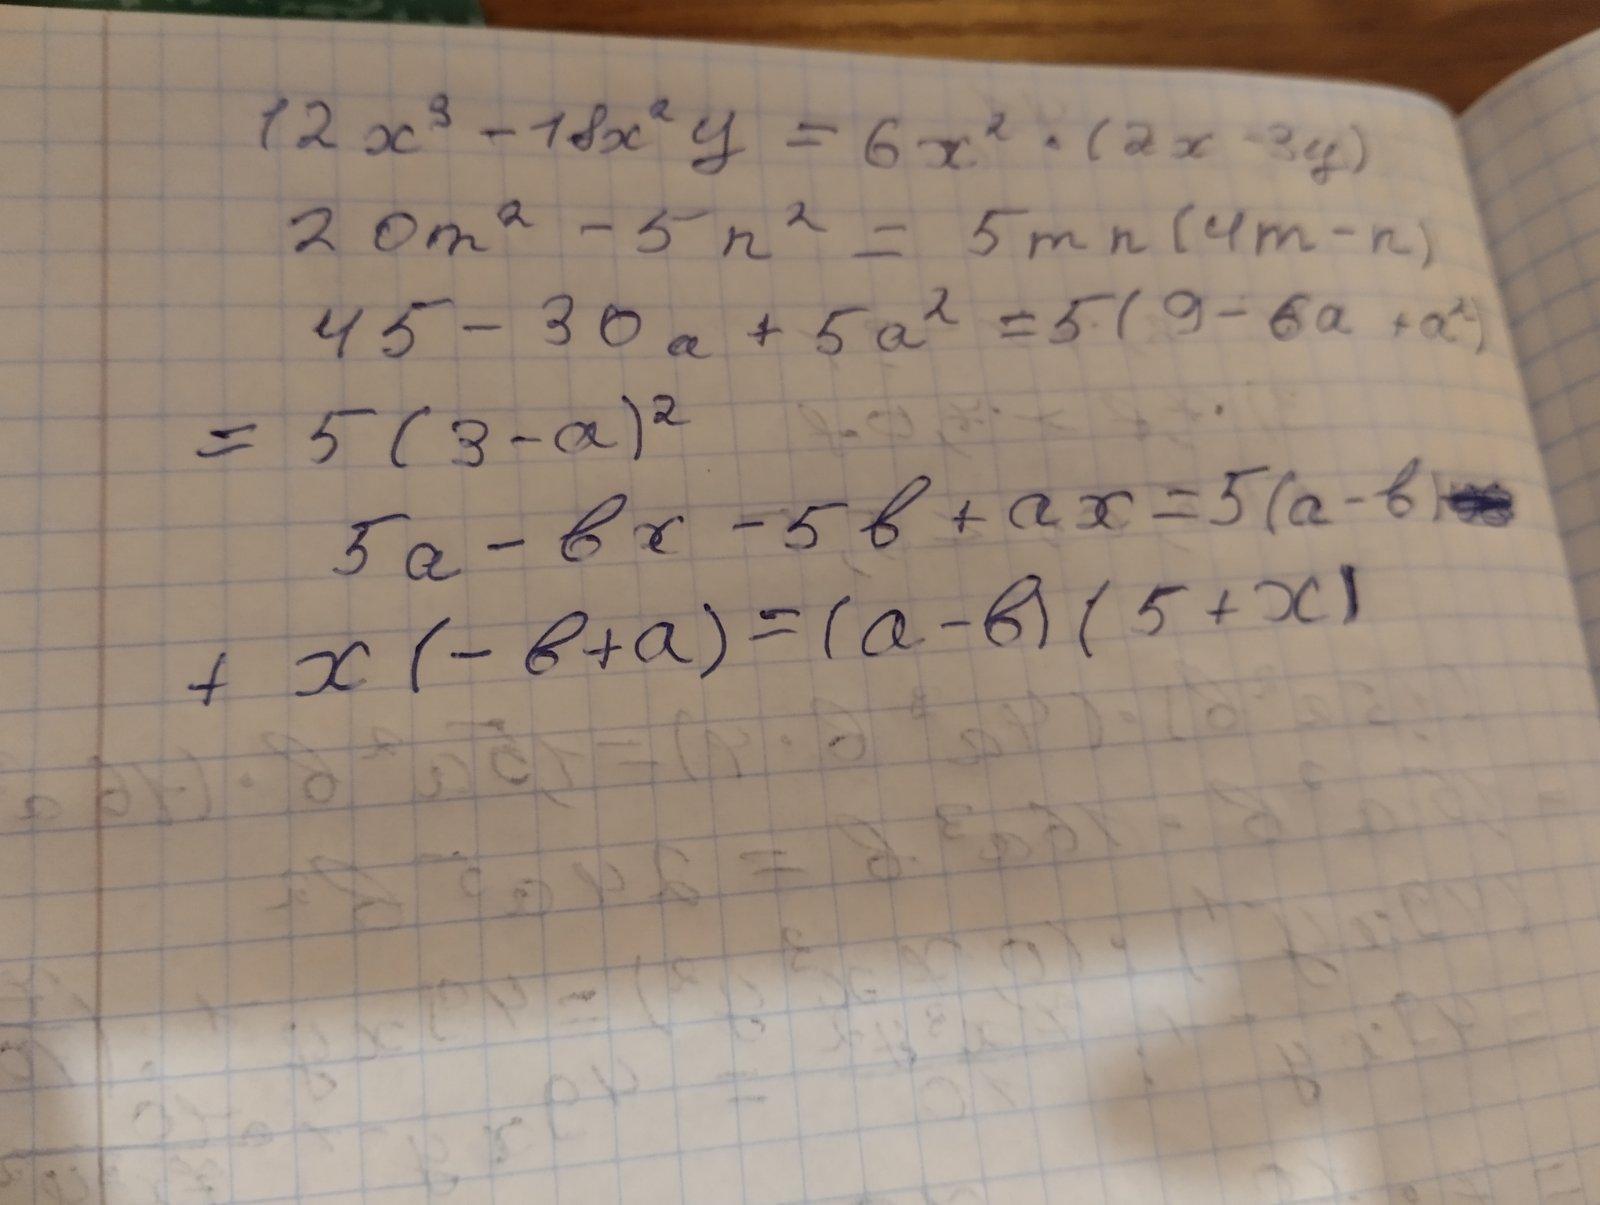 12x³ - 18x²y = 6x² · (2x - 3y)
20m² - 5n² = 5mn(4m - n)
45 - 30a + 5a² = 5(9 - 6a + a²)
= 5(3 - a)²
5a - bx - 5b + ax = 5(a - b)
+ x(-b + a) = (a - b)(5 + x)